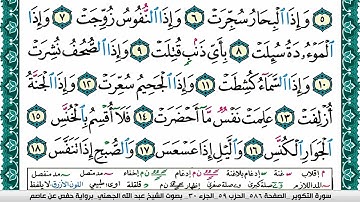 ٥ وَإِذَا ٱلۡبِحَارُ سُجِّرَتۡ ٦ وَإِذَا ٱلنُّفُوسُ زُوِّجَتۡ ٧ وَإِذَا
ٱلۡمَوۡءُۥدَةُ سُئِلَتۡ ٨ بِأَيِّ ذَنۢبٖ قُتِلَتۡ ٩ وَإِذَا ٱلصُّحُفُ نُشِرَتۡ
١٠ وَإِذَا ٱلسَّمَآءُ كُشِطَتۡ ١١ وَإِذَا ٱلۡجَحِيمُ سُعِّرَتۡ ١٢ وَإِذَا ٱلۡجَنَّةُ
أُزۡلِفَتۡ ١٣ عَلِمَتۡ نَفۡسٞ مَّآ أَحۡضَرَتۡ ١٤ فَلَآ أُقۡسِمُ بِٱلۡخُنَّسِ
١٥ ٱلۡجَوَارِ ٱلۡكُنَّسِ ١٦ وَٱلَّيۡلِ إِذَا عَسۡعَسَ ١٧ وَٱلصُّبۡحِ إِذَا تَنَفَّسَ ١٨
سورة التكوير - الصفحة ٥٨٦ - الحزب ٥٩ - الجزء ٣٠ بصوت الشيخ عبد الله الجهني برواية حفص عن عاصم